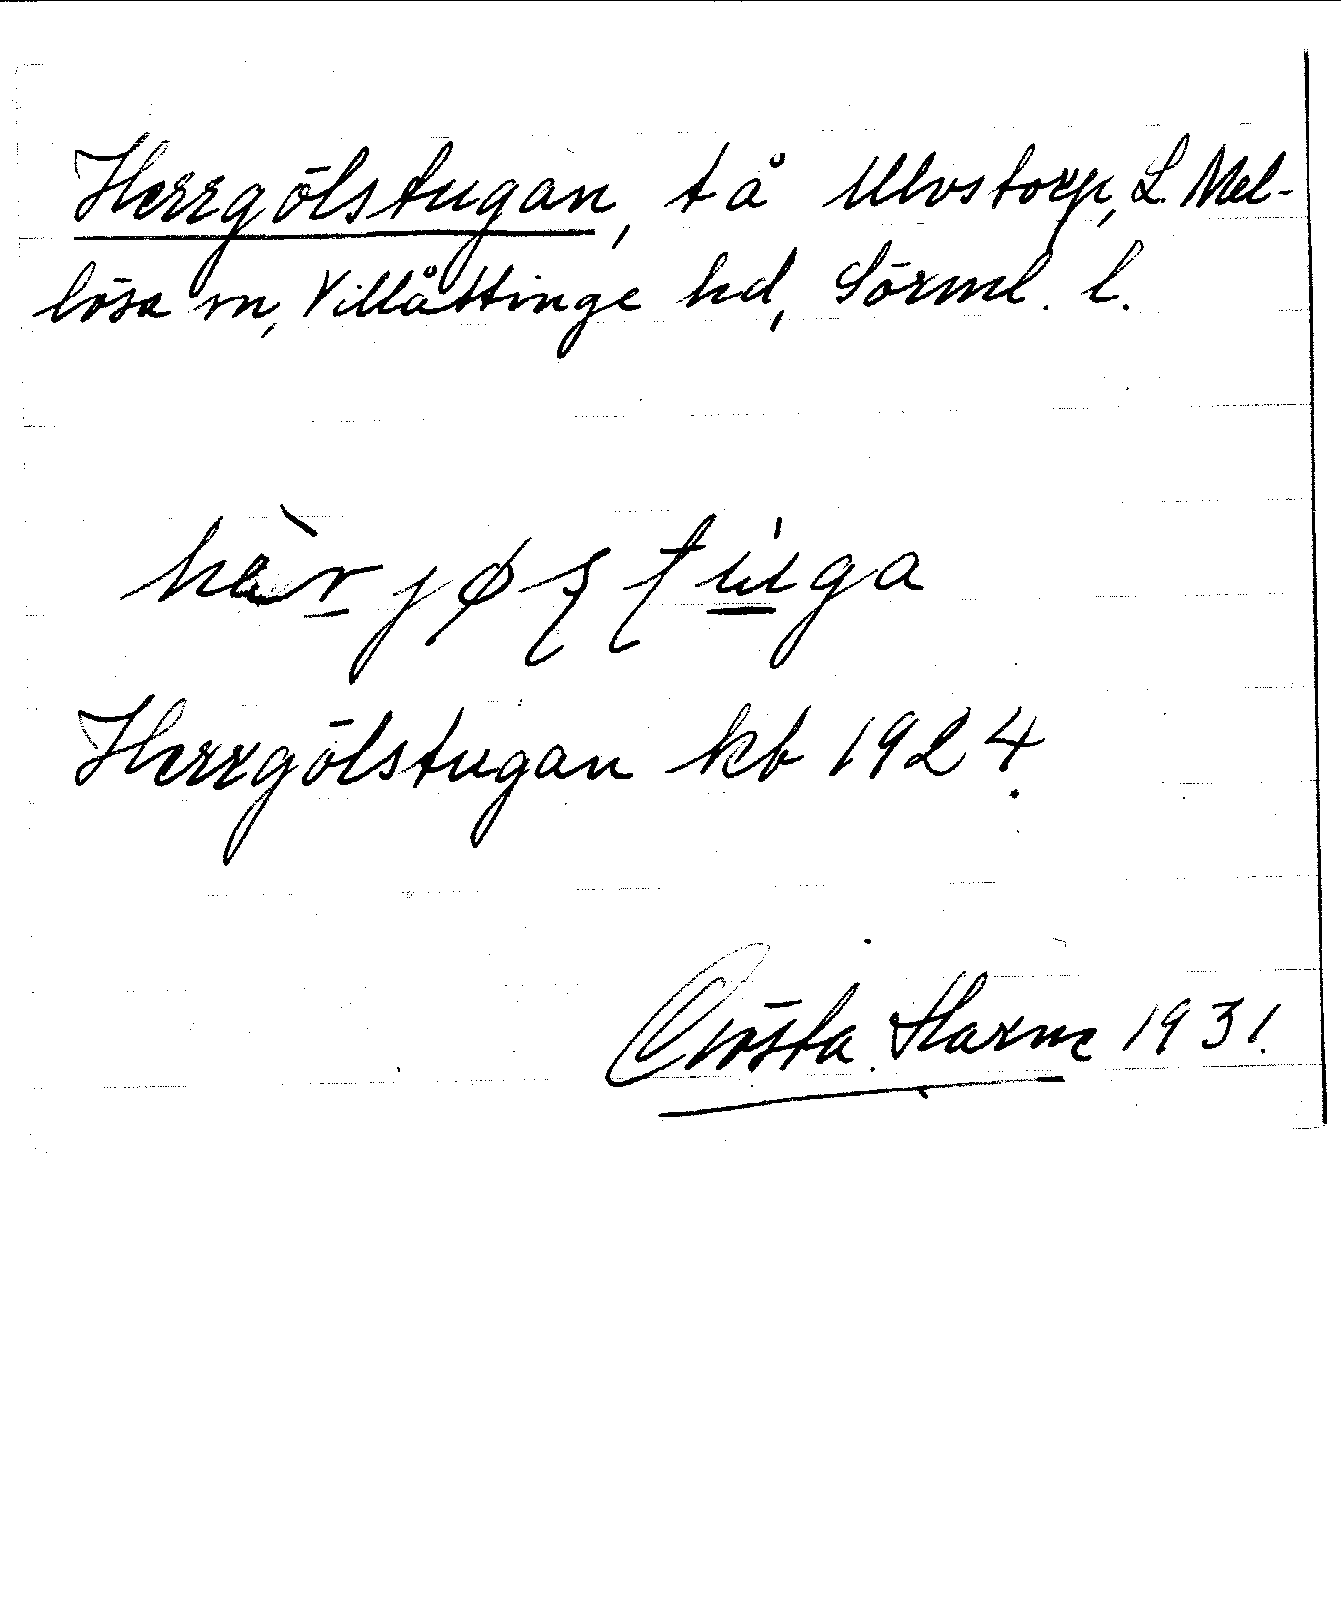 Herrgölstugan, t å Ulvstorp, L. Mel-
lösa sn, Villåttinge hd, Sörml. l.
Herrgölstugan kb 1924.
Gösta Harne 1931.